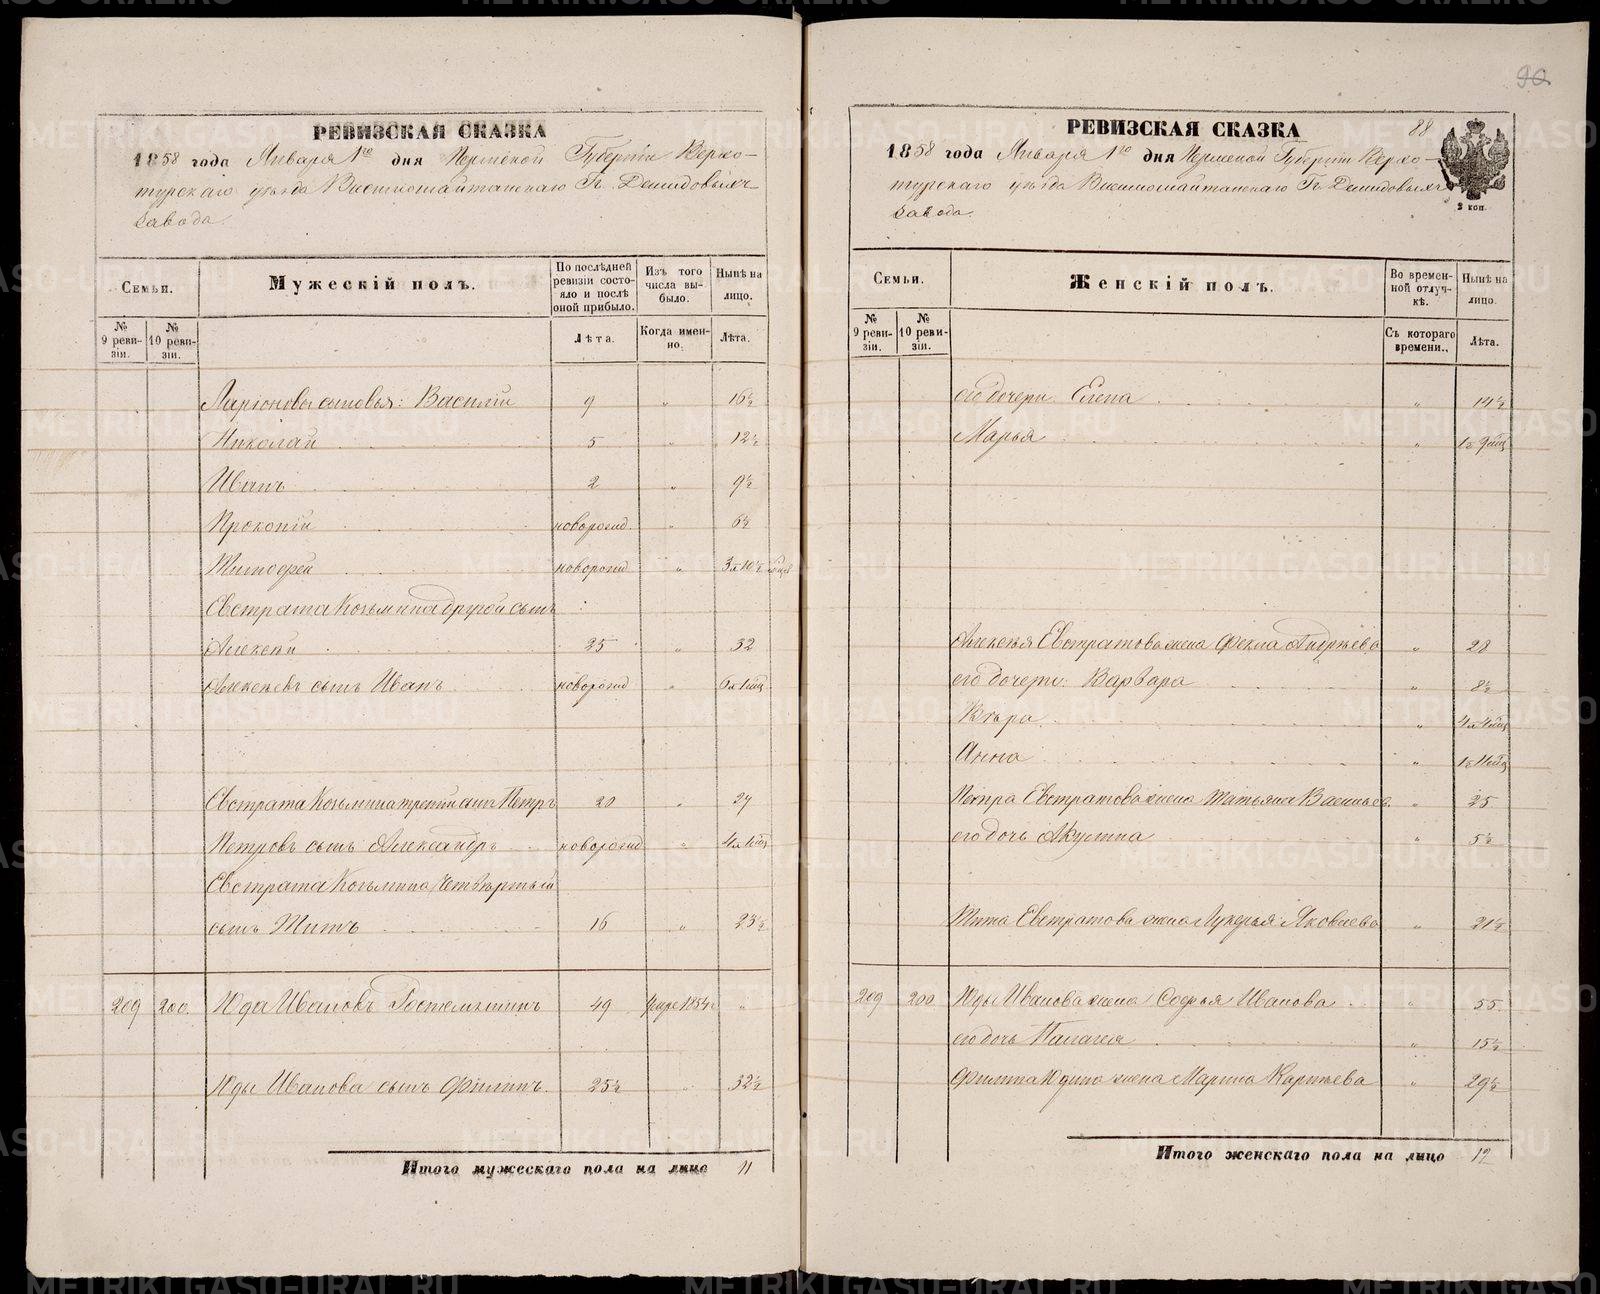 РЕВИЗСКАЯ СКАЗКА
1858 года Января 1го дня Пермской Губерніи Верхо-
турскаго уѣзда Висимошайтанскаго Гг. Демидовыхъ
завода.
Семьи.
Мужескій полъ.
По послѣдней ревизіи состояло и послѣ оной прибыло.
Изъ того числа выбыло.
Нынѣ на лицо.
№ 9 ревизіи.
№ 10 ревизіи.
Лѣта.
Когда именно.
Лѣта.
Ларіоновы сыновья: Василій 9 " 16½
Николай 5 " 12½
Иванъ 2 " 9½
Прокопій новорожд. " 6½
Тимофей новорожд " 3 л 10½ мѣсяц
Евстрата Козьмина другой сынъ
Алексей 25 " 32
Алексеевъ сынъ Иванъ новорожд " 6 л 1 мѣц
Евстрата Козьмина третій сынъ Петръ 20 " 27
Петровъ сынъ Александръ новорожд " 4 л 1 мѣц
Евстрата Козьмина четвертый
сынъ Титъ 16 " 23½
209 200. Юда Ивановъ 49 1854 "
Юды Иванова сынъ Филипъ. 25½ " 32½
Итого мужескаго пола на лицо 11
90
РЕВИЗСКАЯ СКАЗКА
88
1858 года Января 1го дня Пермской Губерніи Верхо-
турскаго уѣзда Висимошайтанскаго Гг. Демидовыхъ
завода.
2 коп.
Семьи.
Женскій полъ.
Во временной отлучкѣ.
Нынѣ на лицо.
№ 9 ревизіи.
№ 10 ревизіи.
Съ котораго времени.
Лѣта.
его дочери Елена " 14½
Марья " 1 г. 9 мѣц
Алексея Евстратова жена Фекла Андреева " 28
его дочери: Варвара " 8½
Вѣра " 4 л 4 мѣц
Анна " 1 г. 11 мѣц
Петра Евстратова жена Татьяна Васильев. " 25
его дочь Акулина " 5½
Тита Евстратова жена Лукерья Яковлева " 21½
209 200 Юды Иванова жена Софья Иванова " 55
его дочь Палагея " 15½
Филипа Юдина жена Марина " 29½
Итого женскаго пола на лицо 12
METRIKI.GASO-URAL.RU